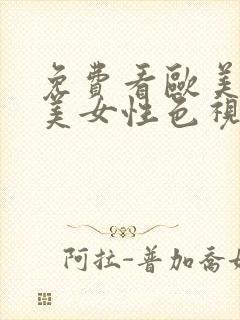 免費看歐美
美女性色視
阿拉-普加喬